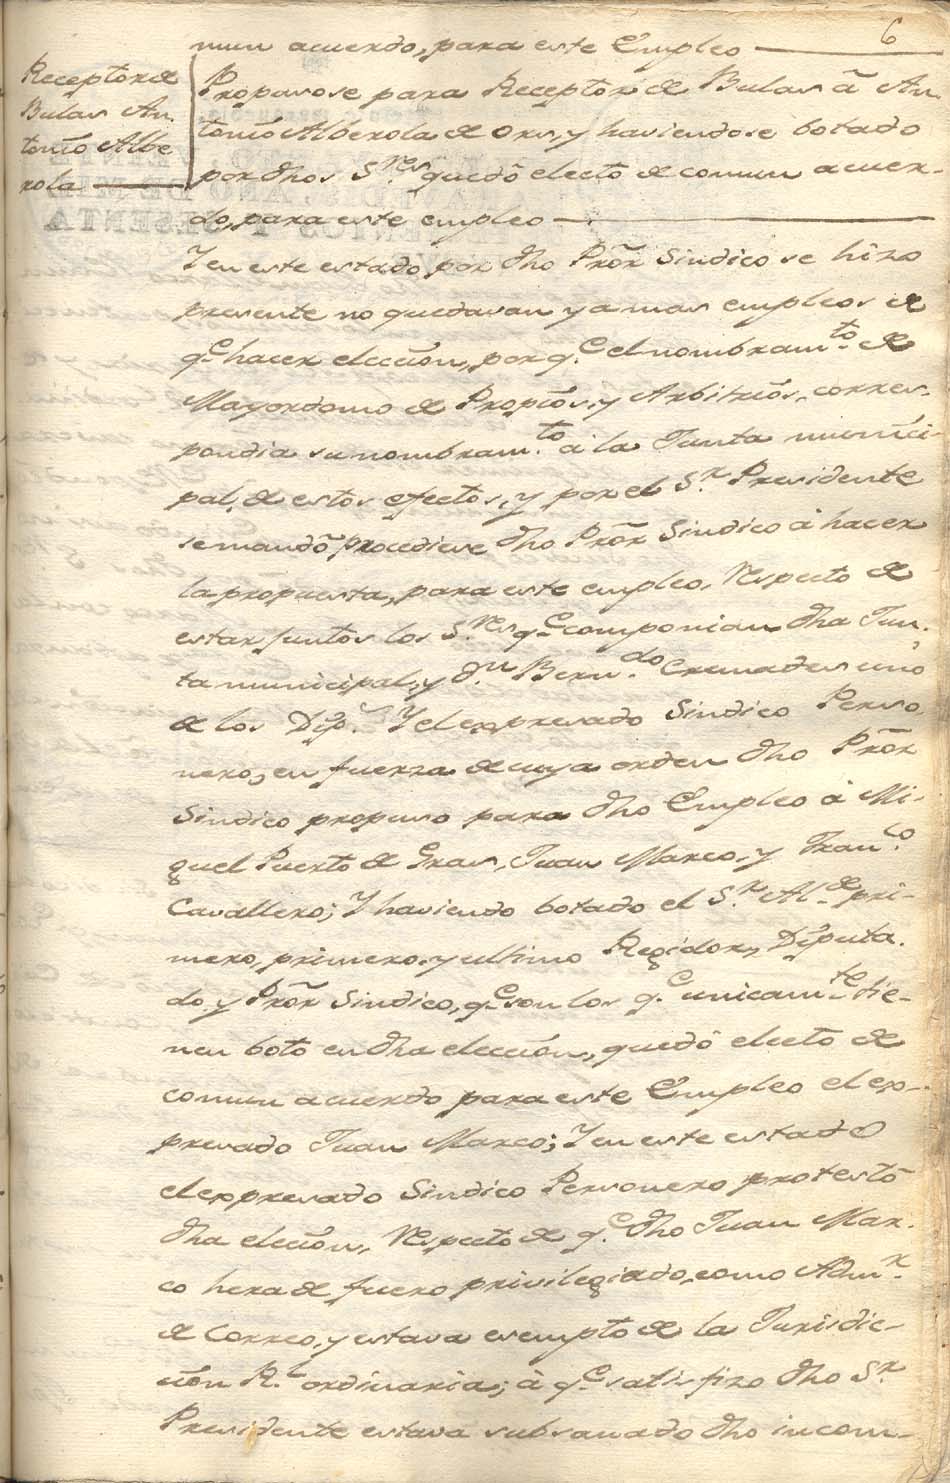 6
mun acuerdo, para este Empleo
Receptor de
Bulas An-
tonio Albe
rola
Proposose para Receptor de Bulas â An-
tonio Alberola de Ors, y haviendose botado
por dhos S.res quedô electo de comun acuer-
do, para este empleo
Y en este estado por dho Pror Sindico se hizo
presente no quedavan ya mas empleos de
q.e hacer eleccion, por q.e el nombram.to de
Mayordomo de Propios, y Arbitrios, corres-
pondia su nombram.to à la Junta munici-
pal, de estos efectos, y por el S.r Presidente
se mandô procediese dho Pror Sindico à hacer
la propuesta, para este empleo, Respecto de
estar juntos los S.res q.e componian dha Jun-
ta municipal, y d.n Bern.do Cremades uno
de los Dip.s Y el expresado Sindico Perso
nero, en fuerza de cuya orden dho Pror
Sindico propuso para dho Empleo à Mi-
guel Puerto de Gras, Juan Marco, y Fran.co
Cavallero; Y haviendo botado el S.r Al.de pri-
mero, primero, y ultimo Regidor, Diputa-
do, y Pror Sindico, q.e son los q.e unicam.te tie-
nen boto en dha eleccion, quedô electo de
comun acuerdo para este Empleo el ex-
presado Juan Marco; Y en este estado
el expresado Sindico Personero protestô
dha eleccion, Respecto de q.e dho Juan Mar-
co hera de fuero privilegiado, como Adm.r
de Correo, y estava exempto de la Jurisdic-
cion R.l ordinaria; à q.e satisfizo dho S.r
Presidente estava subsanado dho incom-